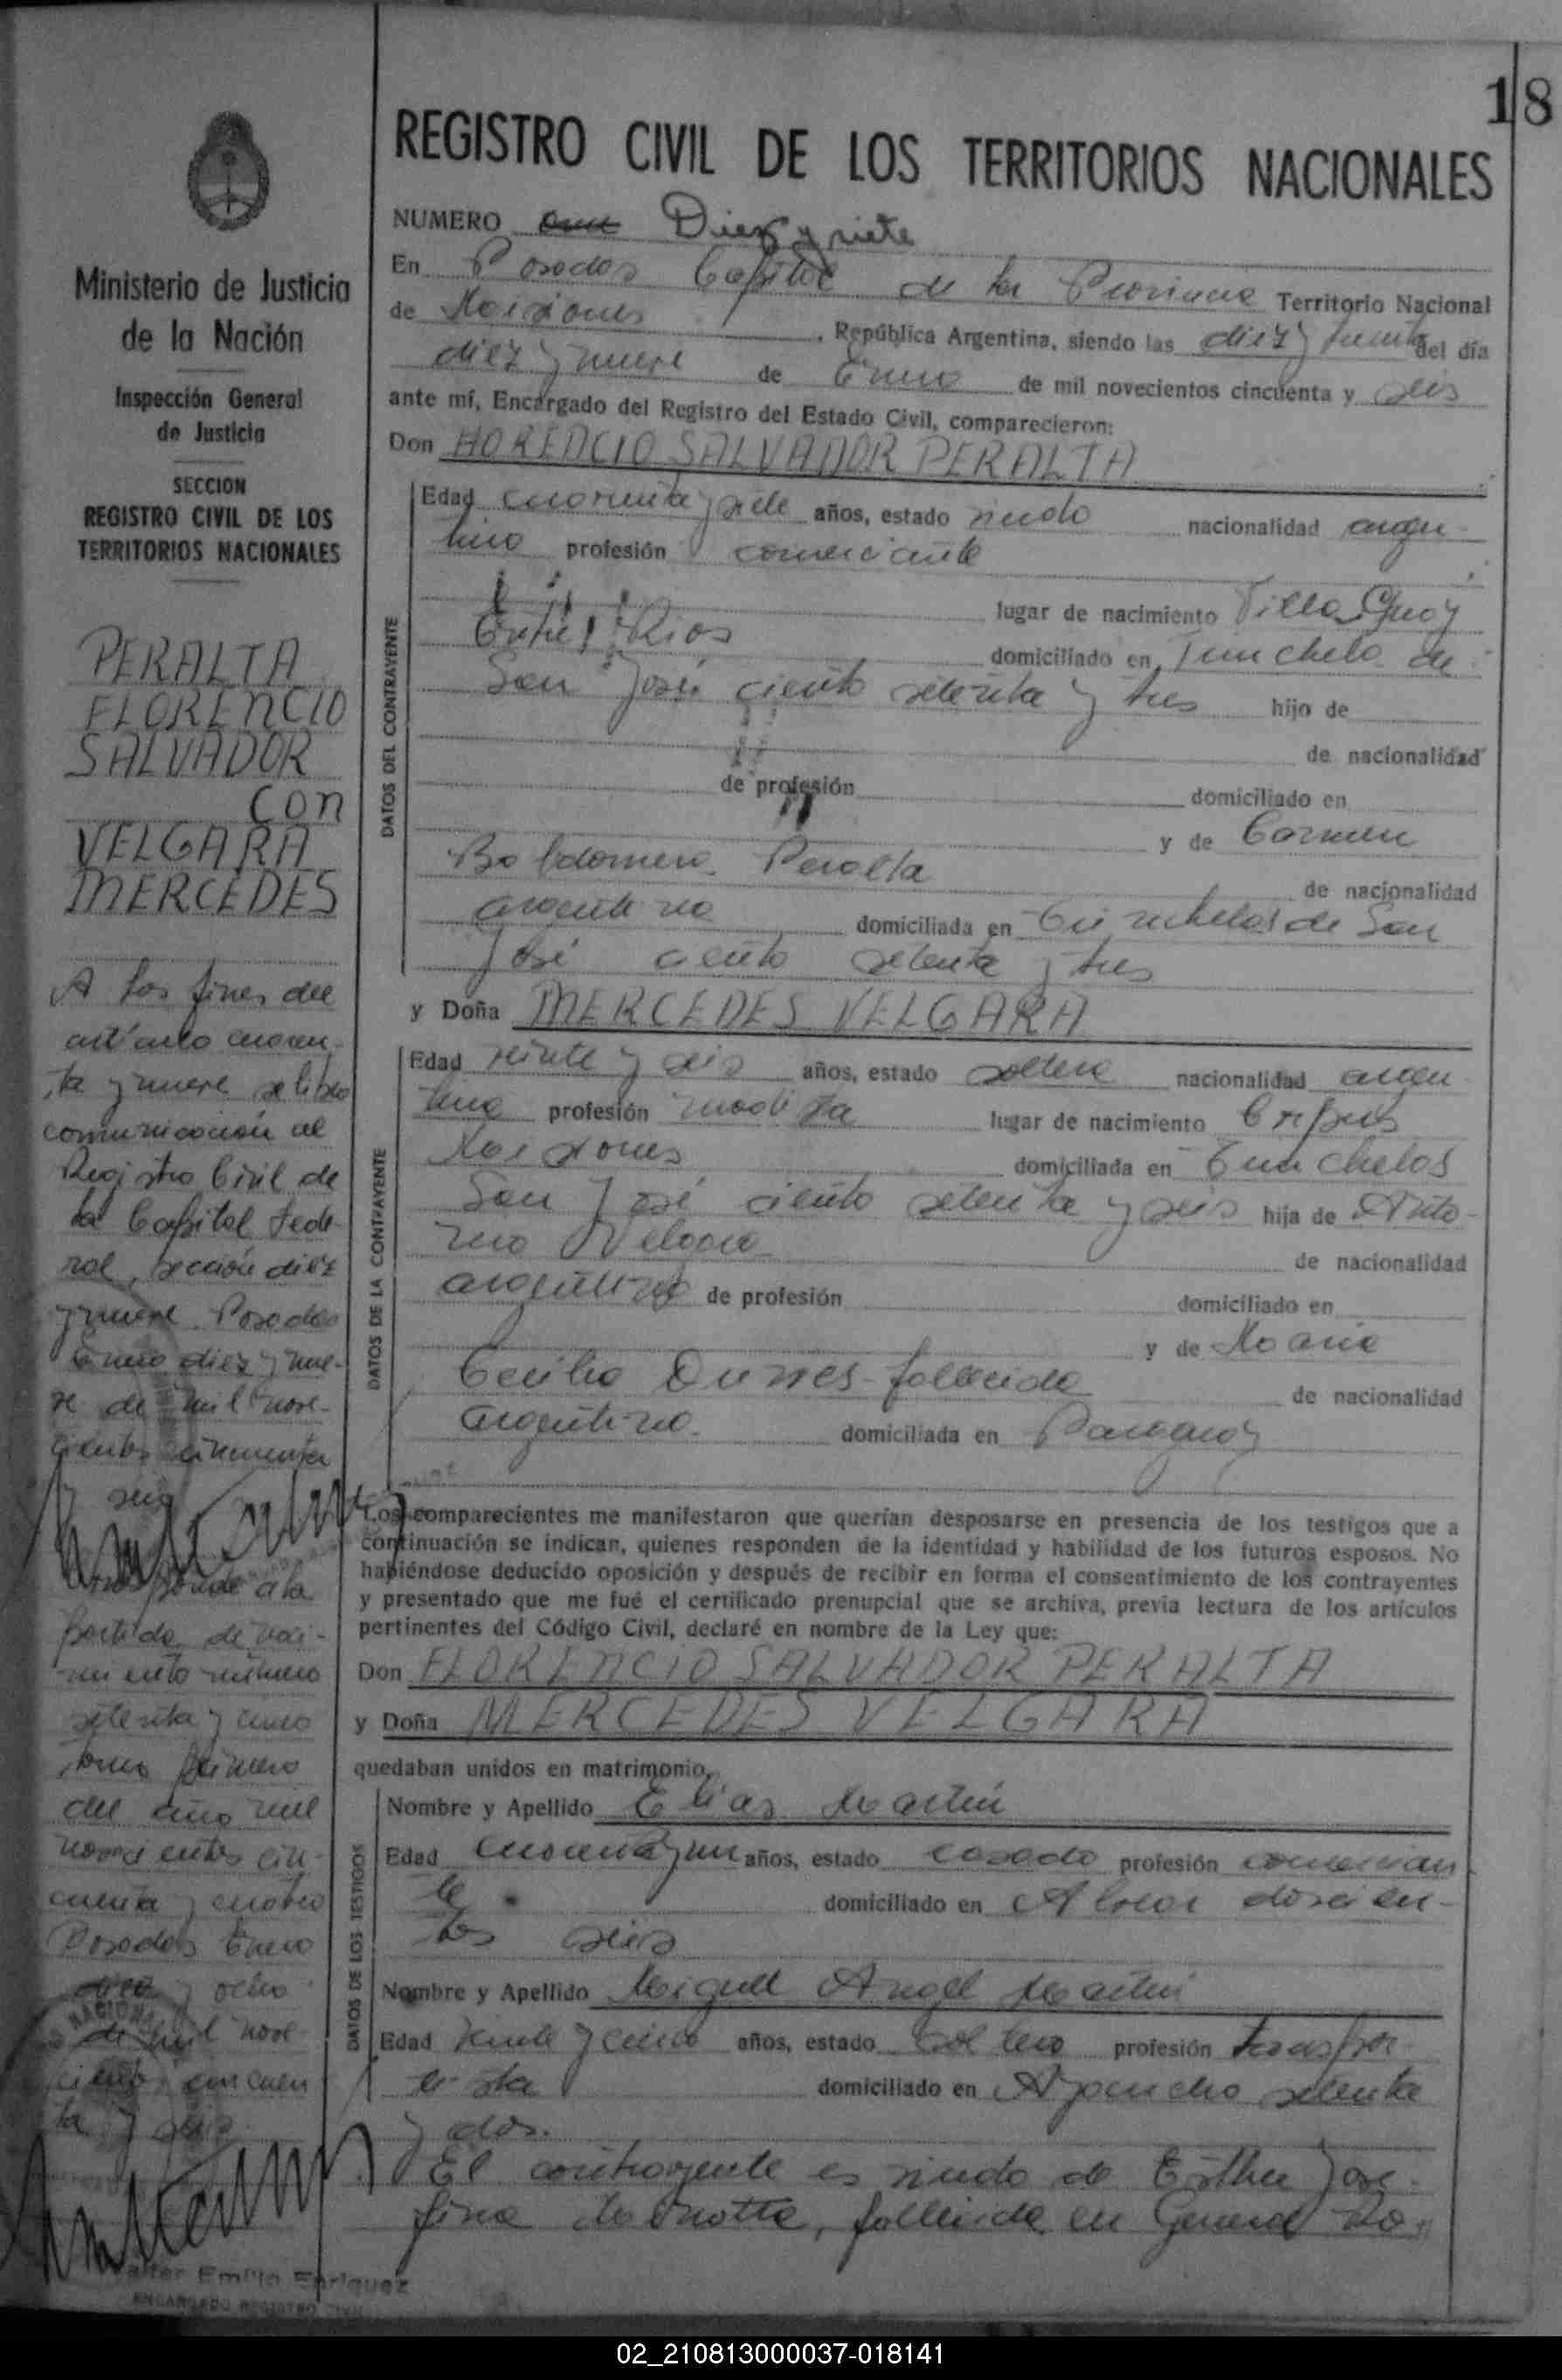 18
REGISTRO CIVIL DE LOS TERRITORIOS NACIONALES
NUMERO Diez y siete
En Posadas Capital de la Provincia Territorio Nacional
de Misiones, República Argentina, siendo las diez y treinta del día
diez y nueve de Enero de mil novecientos cincuenta y seis
ante mí, Encargado del Registro del Estado Civil, comparecieron:
Don FLORENCIO SALVADOR PERALTA
DATOS DEL CONTRAYENTE
Edad cuarenta y siete años, estado viudo nacionalidad argen
tino profesión comerciante
lugar de nacimiento Villaguay
Entre Ríos domiciliado en Trinchera de
San José ciento setenta y tres hijo de
de nacionalidad
de profesión domiciliado en
y de Carmen
Baldomera Peralta de nacionalidad
argentina domiciliada en Trincheras de San
José ciento setenta y tres
y Doña MERCEDES VELGARA
DATOS DE LA CONTRAYENTE
Edad veinte y seis años, estado soltera nacionalidad argen
tina profesión modista lugar de nacimiento Corpus
Misiones domiciliada en Trincheras
San José ciento setenta y seis hija de Anto
nio Velgara de nacionalidad
argentino de profesión domiciliado en
y de María
Cecilia fallecida de nacionalidad
argentina domiciliada en
Los comparecientes me manifestaron que querían desposarse en presencia de los testigos que a
continuación se indican, quienes responden de la identidad y habilidad de los futuros esposos. No
habiéndose deducido oposición y después de recibir en forma el consentimiento de los contrayentes
y presentado que me fué el certificado prenupcial que se archiva, previa lectura de los artículos
pertinentes del Código Civil, declaré en nombre de la Ley que:
Don FLORENCIO SALVADOR PERALTA
y Doña MERCEDES VELGARA
quedaban unidos en matrimonio.
DATOS DE LOS TESTIGOS
Nombre y Apellido Elías Martín
Edad años, estado casado profesión comercian
te domiciliado en doscien-
tos seis
Nombre y Apellido Miguel Angel Martín
Edad veinte y cinco años, estado soltero profesión transpor
tista domiciliado en Ayacucho setenta
y dos.
El contrayente es viudo de Esther Jose-
fina fallecida en General
Ministerio de Justicia
de la Nación
Inspección General
de Justicia
SECCION
REGISTRO CIVIL DE LOS
TERRITORIOS NACIONALES
PERALTA
FLORENCIO
SALVADOR
CON
VELGARA
MERCEDES
A los fines del
artículo cuaren-
ta y nueve se libró
comunicación al
Registro Civil de
la Capital Fede-
ral, sección diez
y nueve. Posadas
Enero diez y nue-
ve de mil nove-
cientos cincuenta
y seis
a la
partida de naci-
miento número
setenta y cinco
tomo primero
del año mil
novecientos cin-
cuenta y cuatro
Posadas Enero
y ocho
de mil nove-
cientos cincuen
ta y seis
Emilio Enriquez
ENCARGADO REGISTRO CIVIL
02_210813000037-018141